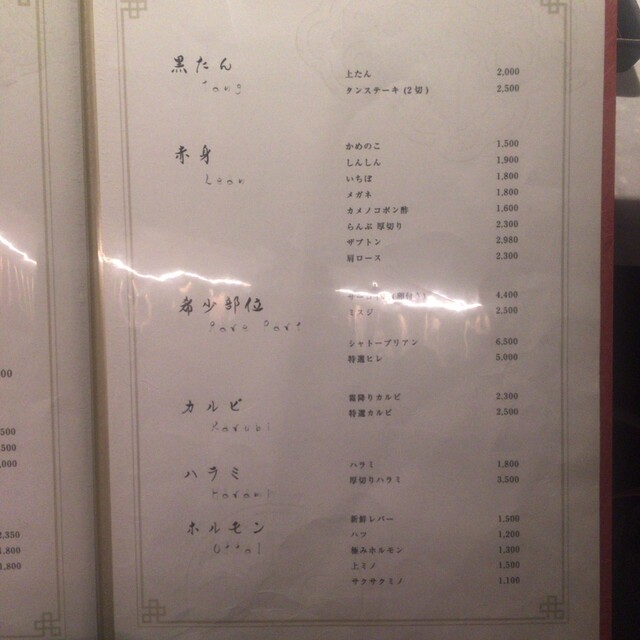 黒たん
Tong
上たん 2,000
タンステーキ (2切) 2,500
赤身
Lean
かめのこ 1,500
しんしん 1,900
いちぼ 1,800
メガネ 1,800
カメノコポン酢 1,600
らんぷ 厚切り 2,300
ザブトン 2,980
肩ロース 2,300
希少部位
Rare Part
4,400
ミスジ 2,500
シャトーブリアン 6,500
特選ヒレ 5,000
カルビ
Karubi
霜降りカルビ 2,300
特選カルビ 2,500
ハラミ
Harami
ハラミ 1,800
厚切りハラミ 3,500
ホルモン
Offal
新鮮レバー 1,500
ハツ 1,200
極みホルモン 1,300
上ミノ 1,500
サクサクミノ 1,100